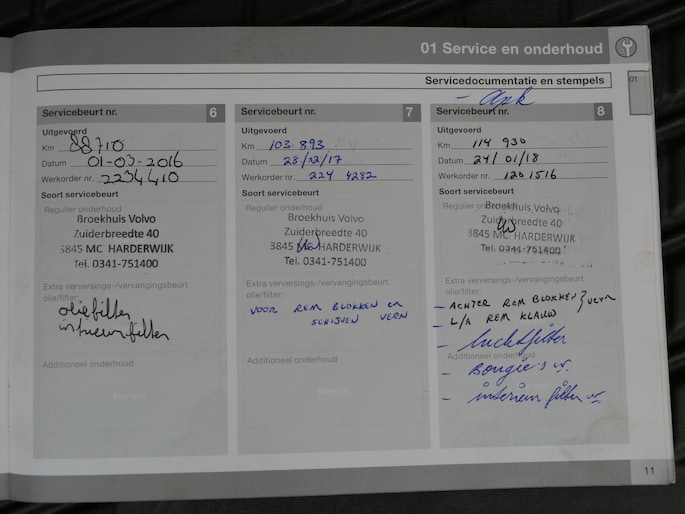 01 Service en onderhoud
Servicedocumentatie en stempels
01
Servicebeurt nr. 6
Uitgevoerd
Km 88710
Datum 01-03-2016
Werkorder nr. 2234410
Soort servicebeurt
Regulier onderhoud
Broekhuis Volvo
Zuiderbreedte 40
3845 MC HARDERWIJK
Tel. 0341-751400
Extra verversings-/vervangingsbeurt
olie/filter:
oliefilter
interieurfilter
Additioneel onderhoud
Stempel
Servicebeurt nr. 7
Uitgevoerd
Km 103.893
Datum 28/02/17
Werkorder nr. 224 4282
Soort servicebeurt
Regulier onderhoud
Broekhuis Volvo
Zuiderbreedte 40
3845 MC HARDERWIJK
Tel. 0341-751400
Extra verversings-/vervangingsbeurt
olie/filter:
VOOR REM BLOKKEN en
SCHIJVEN VERN
Additioneel onderhoud
- apk
Servicebeurt nr. 8
Uitgevoerd
Km 114 930
Datum 24/01/18
Werkorder nr. 1201516
Soort servicebeurt
Regulier onderhoud
Broekhuis Volvo
Zuiderbreedte 40
3845 MC HARDERWIJK
Tel. 0341-751400
Extra verversings-/vervangingsbeurt
olie/filter:
- ACHTER REM BLOKKEN } VERN
- L/A REM KLAUW
- luchtfilter
Additioneel onderhoud
- Bougie's vr.
- interieur filter vr.
11